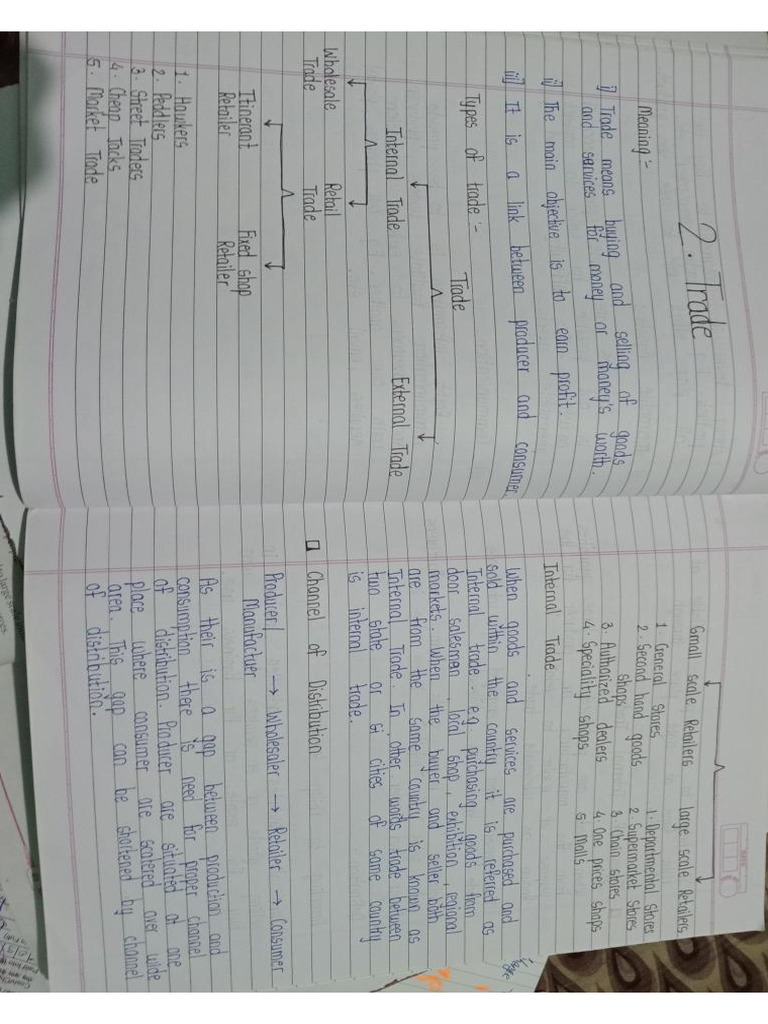 2. Trade
Meaning :-
i) Trade means buying and selling of goods
and services for money or money's worth.
ii) The main objective is to earn profit.
iii) It is a link between producer and consumer.
Types of trade :-
Trade
Internal Trade External Trade
Wholesale Retail
Trade Trade
Itinerant Fixed shop
Retailer Retailer
1. Hawkers
2. Peddlers
3. Street Traders
4. Cheap Jacks
5. Market Trade
Small scale Retailers large scale Retailers
1 General Stores 1. Departmental Stores
2. Second hand goods 2. Supermarket Stores
shops 3 Chain stores
3. Authorized dealers 4 One prices shops
4. Speciality shops 5 Malls
Internal Trade
When goods and services are purchased and
sold within the country it is referred as
Internal trade. e.g purchasing goods from
door salesman, local shop, exhibition, regional
markets. When the buyer and seller both
are from the same country is known as
Internal Trade. In other words trade between
two state or cities of same country
is internal trade.
Channel of Distribution
Producer/ → Wholesaler → Retailer → Consumer
Manufactuer
As their is a gap between production and
consumption there is need for proper channel
of distribution. Producer are situated at one
place where consumer are scatered over wide
area. This gap can be shortened by channel
of distribution.